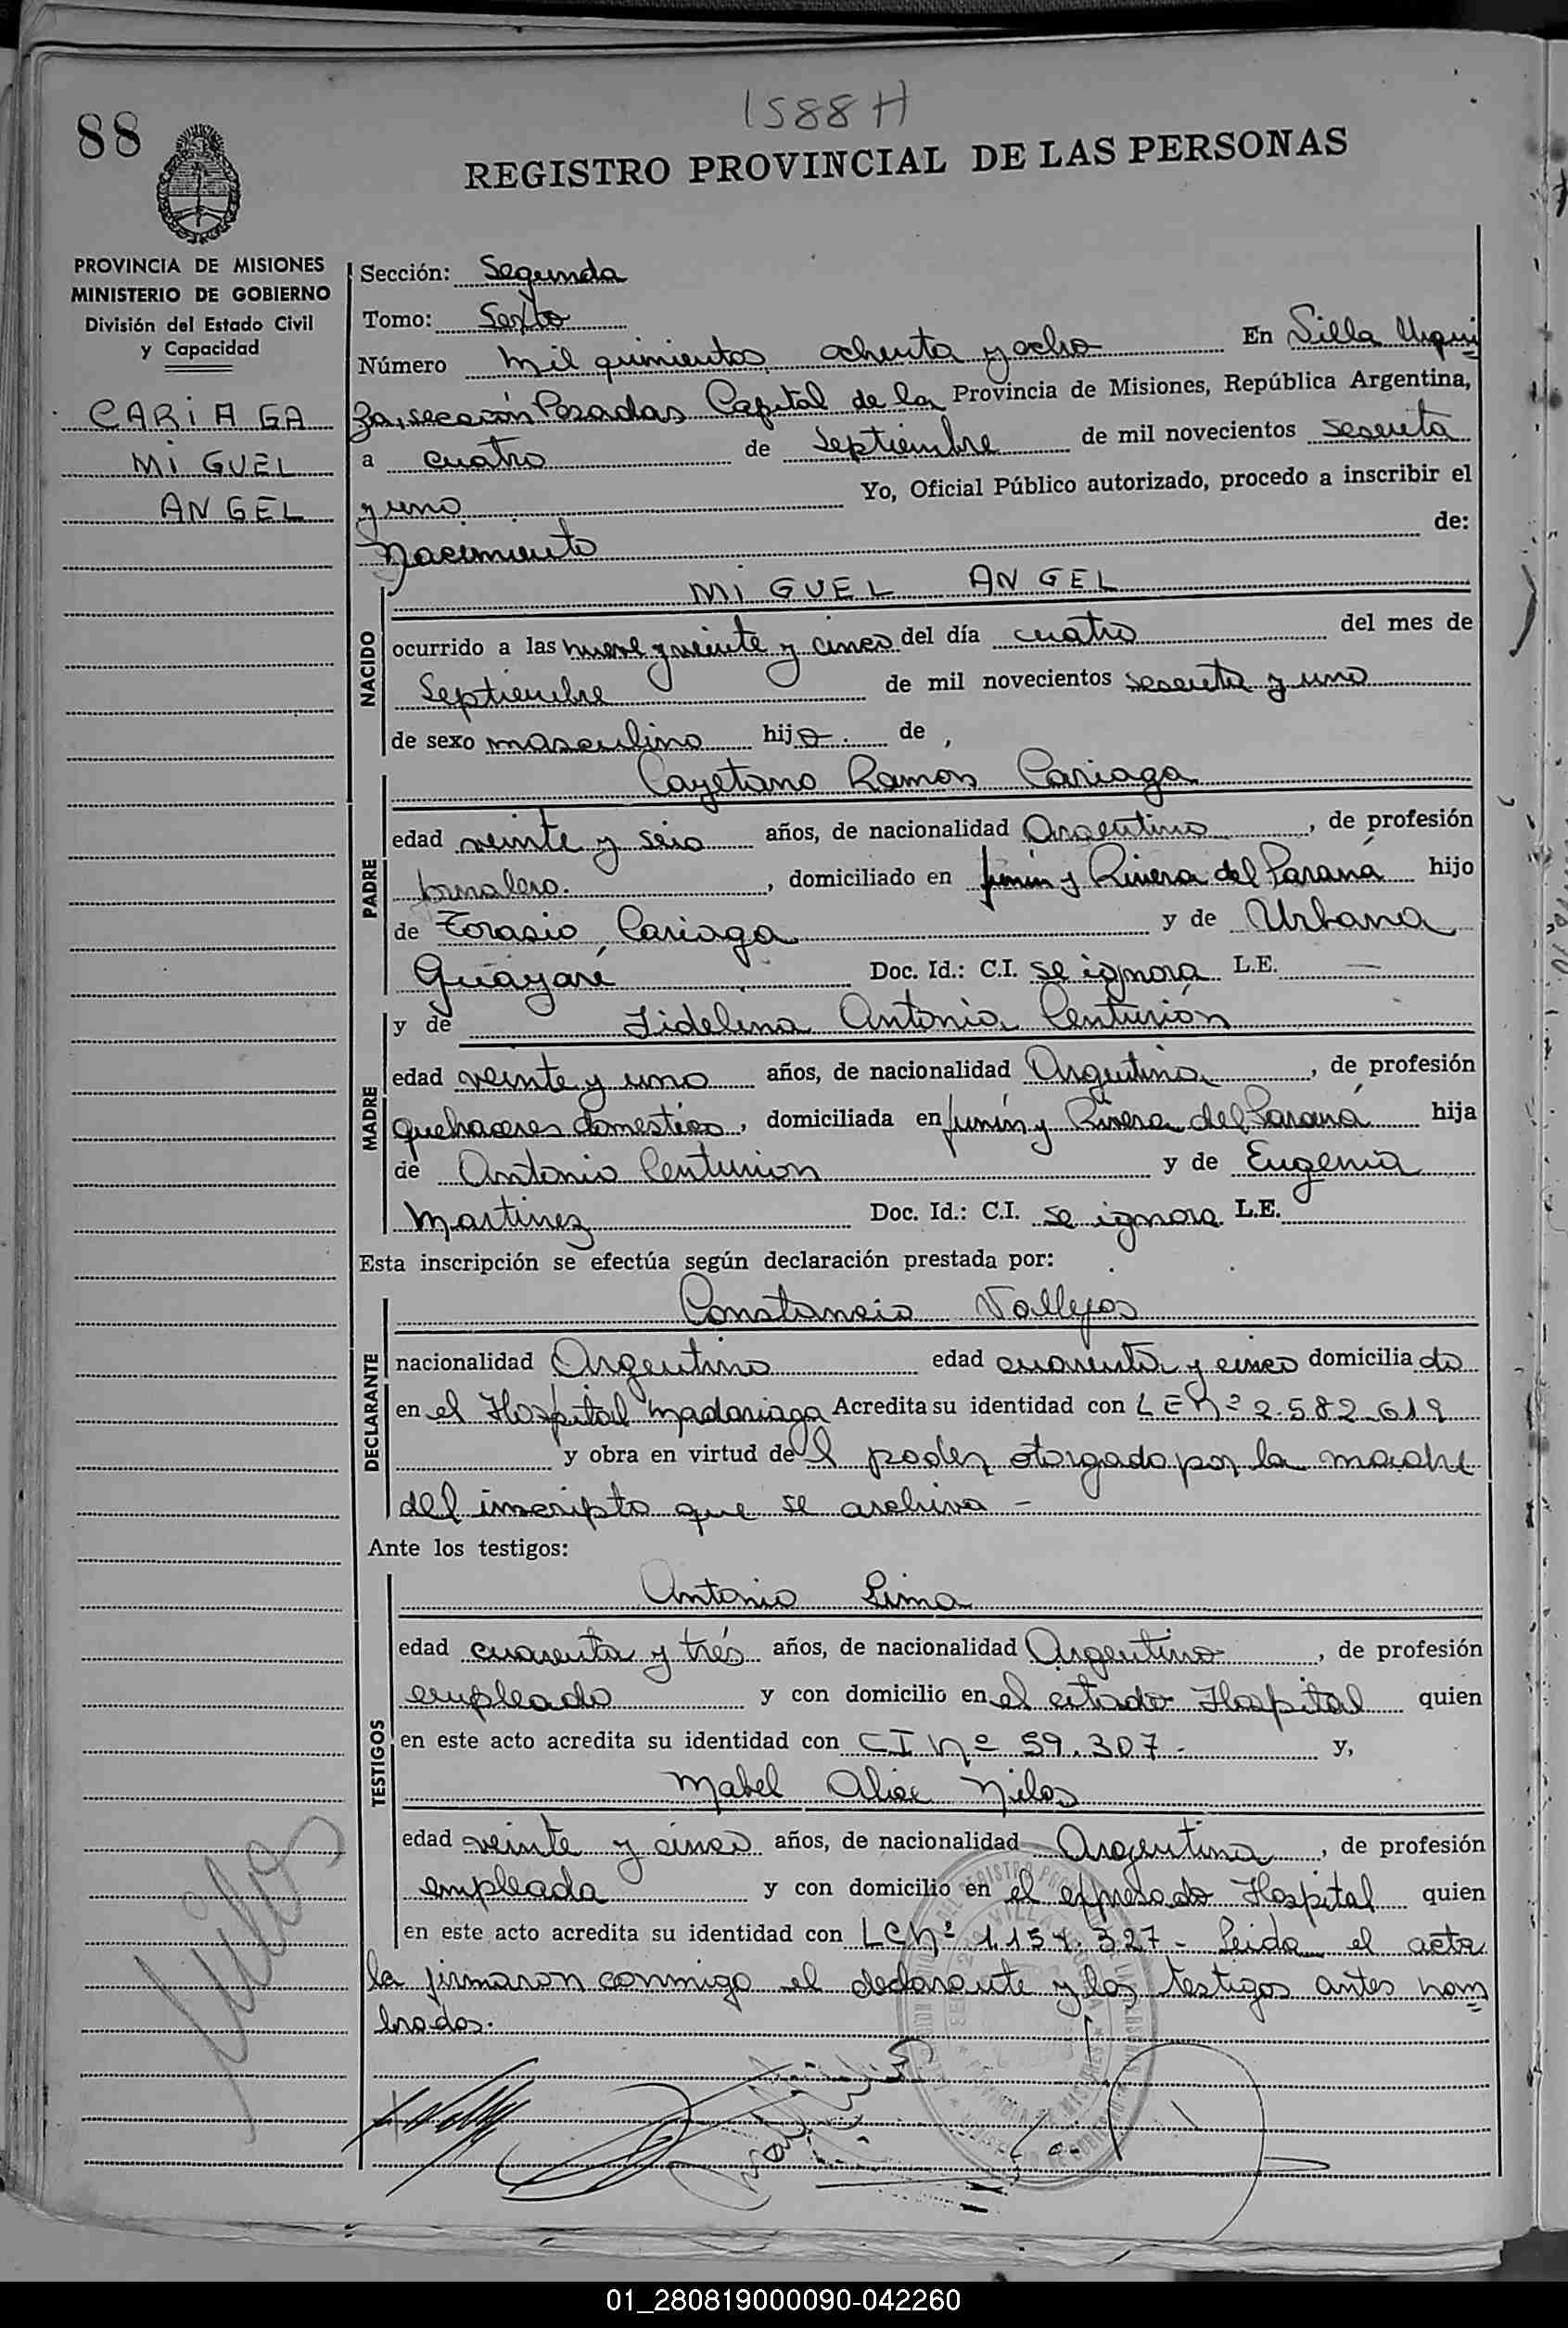 1588 H
88
REGISTRO PROVINCIAL DE LAS PERSONAS
PROVINCIA DE MISIONES
MINISTERIO DE GOBIERNO
División del Estado Civil
y Capacidad
CARIAGA
MIGUEL
ANGEL
Sección: Segunda
Tomo: Sexto
Número mil quinientos ochenta y ocho En Villa Urqui
za, sección Posadas Capital de la Provincia de Misiones, República Argentina,
a cuatro de Septiembre de mil novecientos sesenta
y uno Yo, Oficial Público autorizado, procedo a inscribir el
Nacimiento de:
NACIDO
MIGUEL ANGEL
ocurrido a las nueve y veinte y cinco del día cuatro del mes de
Septiembre de mil novecientos sesenta y uno
de sexo masculino hijo. de,
PADRE
Cayetano Ramon Cariaga
edad veinte y seis años, de nacionalidad Argentino, de profesión
jornalero., domiciliado en Junín y Rivera del Paraná hijo
de Horasio Cariaga y de Urbana
Guayaré Doc. Id.: C.I. se ignora L.E. —
MADRE
y de Fidelina Antonia Centurión
edad veinte y uno años, de nacionalidad Argentina, de profesión
quehaceres domesticos, domiciliada en Junín y Rivera del Paraná hija
de Antonio Centurion y de Eugenia
Martinez Doc. Id.: C.I. se ignora L.E.
Esta inscripción se efectúa según declaración prestada por:
DECLARANTE
Constancio Vallejos
nacionalidad Argentino edad cuarenta y cinco domiciliado
en el Hospital Madariaga Acredita su identidad con L E Nº 2.582.619
y obra en virtud del poder otorgado por la madre
del inscripto que se archiva -
Ante los testigos:
TESTIGOS
Antonio Lima
edad cuarenta y trés años, de nacionalidad Argentino, de profesión
empleado y con domicilio en el citado Hospital quien
en este acto acredita su identidad con CI Nº 59.307- y,
Mabel Alice
edad veinte y cinco años, de nacionalidad Argentina, de profesión
empleada y con domicilio en el expresado Hospital quien
en este acto acredita su identidad con LC Nº 327- Leida el acta
la firmaron conmigo el declarante y los testigos antes nom
brados.
01_280819000090-042260